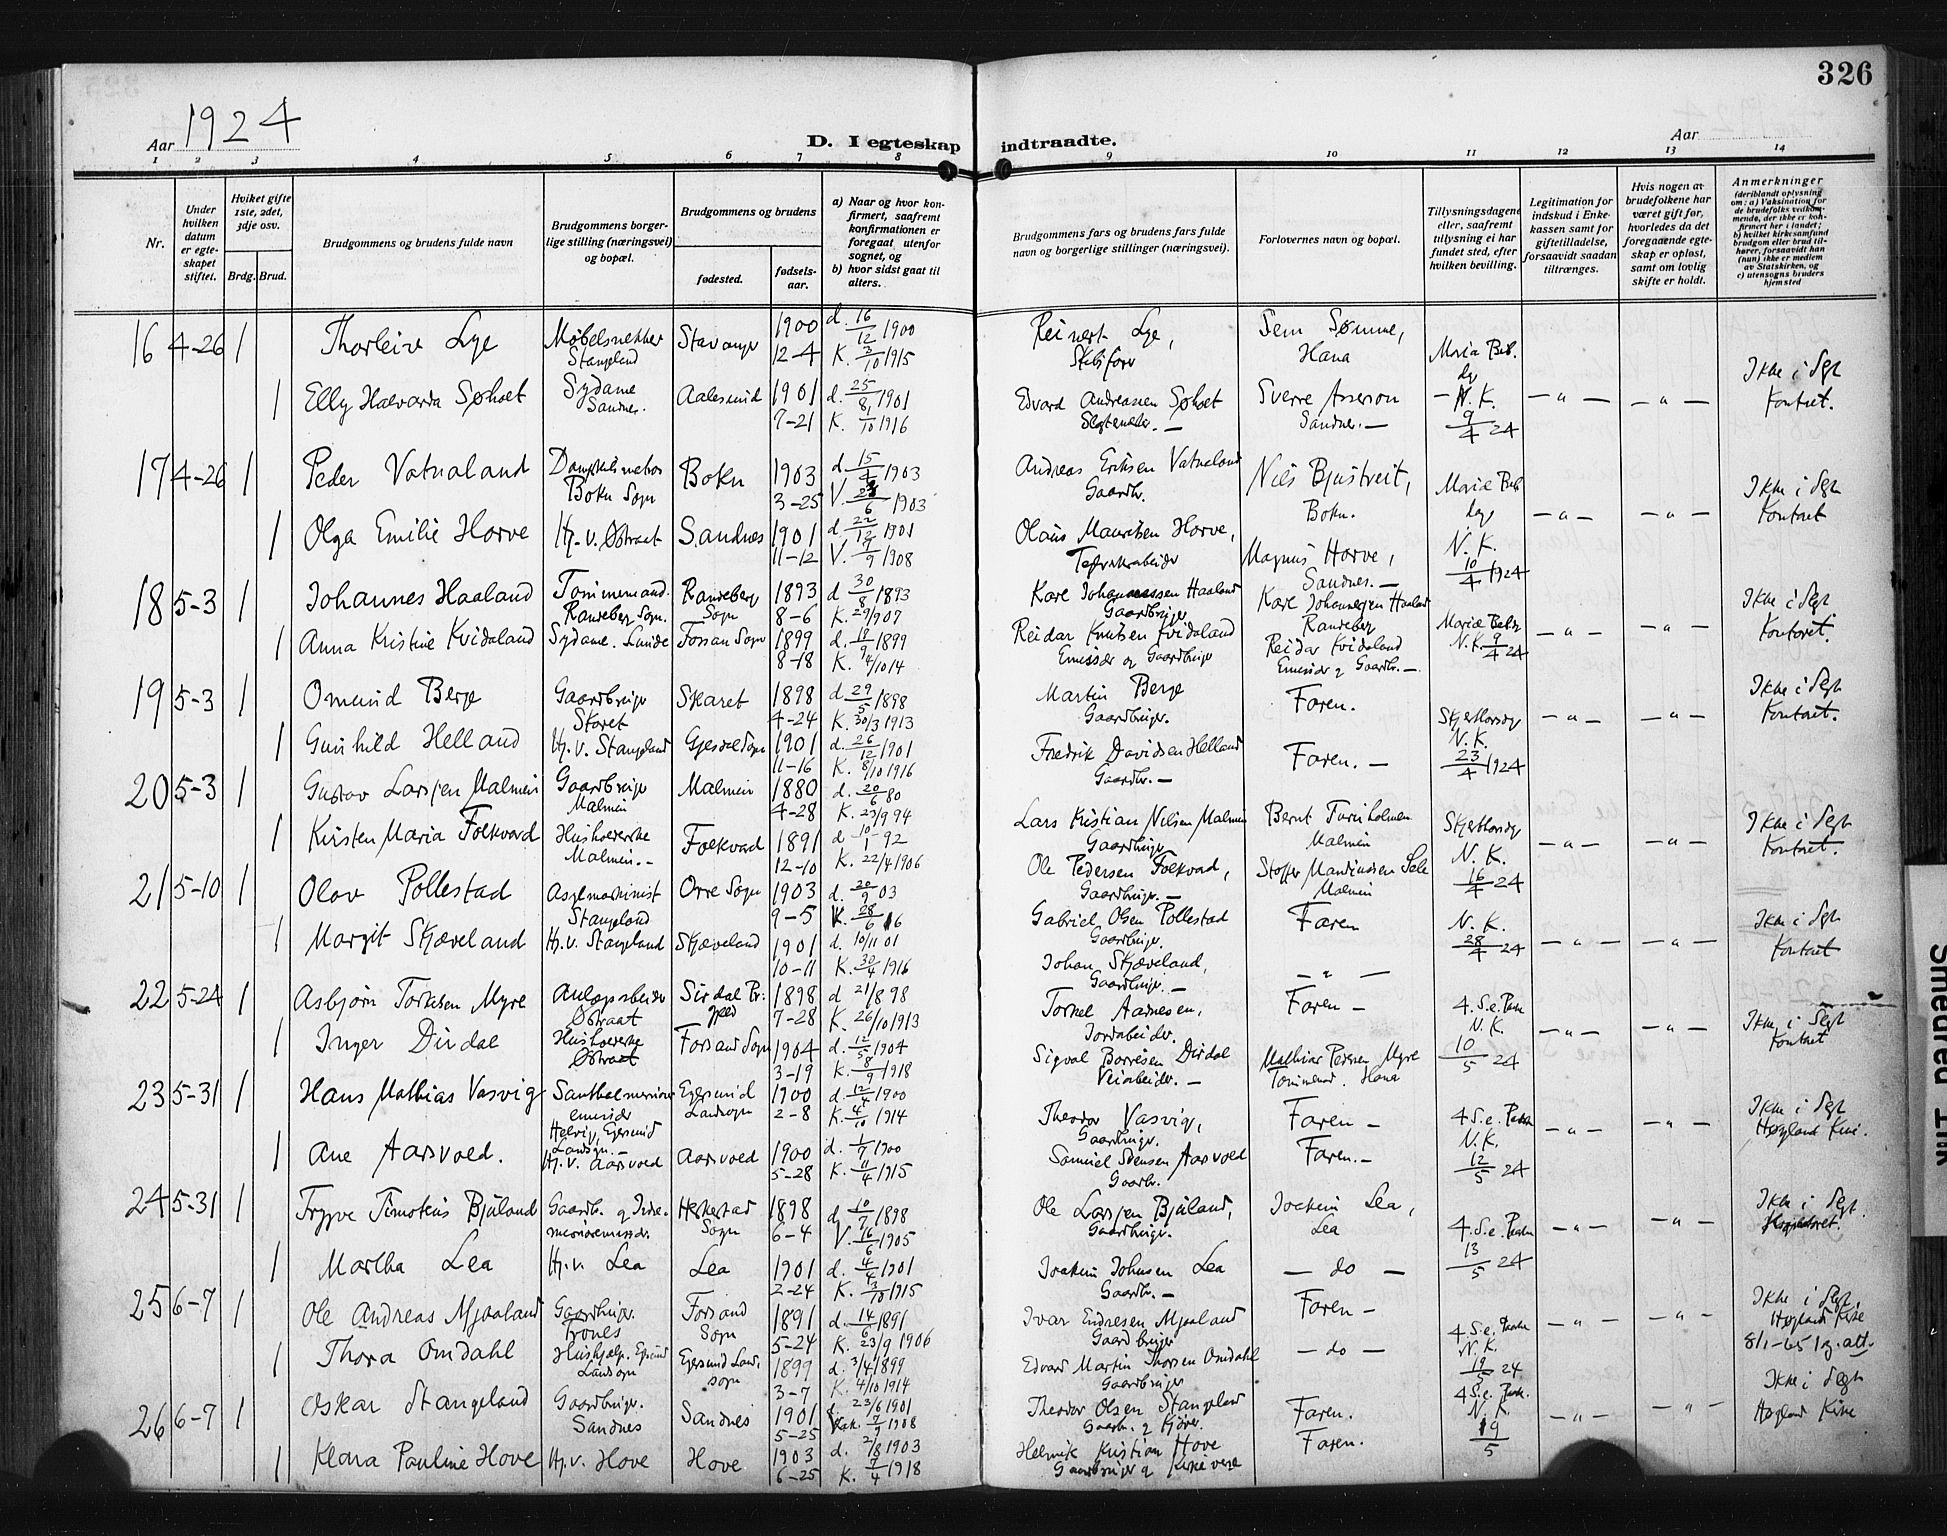 326
Aar 1924
D. I egteskap indtraadte.
Aar
1 2 3 4 5 6 7 8 9 10 11 12 13 14
Nr.
Under hvilken datum er egteskapet stiftet.
Hviket gifte 1ste, 2det, 3dje osv.
Brdg. Brud.
Brudgommens og brudens fulde navn
Brudgommens borgerlige stilling (næringsvei) og bopæl.
Brudgommens og brudens
fødested.
fødselsaar.
a) Naar og hvor konfirmert, saafremt konfirmationen er foregaat utenfor sognet, og
b) hvor sidst gaat til alters.
Brudgommens fars og brudens fars fulde navn og borgerlige stillinger (næringsvei).
Forlovernes navn og bopæl.
Tillysningsdagene eller, saafremt tillysning ei har fundet sted, efter hvilken bevilling.
Legitimation for indskud i Enkekassen samt for giftetilladelse, forsaavidt saadan tiltrænges.
Hvis nogen av brudefolkene har været gift før, hvorledes da det foregaaende egteskap er opløst, samt om lovlig skifte er holdt.
Anmerkninger (deriblandt oplysning om: a) Vaksination for de brudefolks vedkommende, der ikke er konfirmert her i landet; b) hvilket kirkesamfund brudgom eller brud tilhører, forsaavidt han (hun) ikke er medlem av Statskirken, og c) utensogns bruders hjemsted
16 4-26 1 Thorleiv Lye Møbelsnekker Stangeland Stavanger 1900 12-4 d. 16/12 1900 K. 3/10 1915 Reinert Lye, Skibsfører Sem Sømme, Hana Mariæ Beb. dg
1 Elly Halvarda Søholt Sydame Sandnes. Aalesund 1901 7-21 d. 25/8 1901 K. 1/10 1916 Edvard Andreassen Søholt Sverre Asserson Sandnes. — N.K. 9/4 24 — " — — " — Ikke i Slgt Kontret.
17 4-26 1 Peder Vatnaland Bokn Sogn Bokn 1903 3-25 d 15/4 1903 V. 6 1903 Andreas Eriksen Vatnaland Gaardbr. Nils Bjustveit, Bokn. Mariæ Beb. dag
1 Olga Emilie Horve Hj. v. Østraat Sandnes 1901 11-12 d 22/12 1901 V. 9 1908 Olaus Mauritsen Horve, Magnus Horve, Sandnes. — N.K. 10/4 1924 — " — — " — Ikke i Slgt Kontret
18 5-3 1 Johannes Haaland Tømmermand. Randeberg Sogn. Randeberg Sogn 1893 8-6 d 30/8 1893 K. 29/9 07 Kare Johannessen Haaland Gaardbruger Kare Johannessen Haaland Randeberg Mariæ Beb dg
1 Anna Kristine Kvidaland Sydame. Lunde Fossan Sogn 1899 8-18 d. 19/9 1899 K. 4/10 14 Reidar Knutsen Kvidaland Emissær og Gaardbruger Reidar Kvidaland Emissær g Gaardbr. — N.K. 9/4 24 — " — — " — Ikke i Slgt Kontoret.
19 5-3 1 Omund Berge Gaardbruger Skaret Skaret 1898 4-24 d 29/5 1898 K. 30/3 1913 Martin Berge Gaardbruger. Faren. Skjærtorsdg
1 Gunhild Helland Hj. v. Stangeland Gjesdal Sogn 1901 11-16 d. 26/12 1901 K. 8/10 1916 Fredrik Davidsen Helland Gaardbr. — Faren. — N.K. 23/4 1924 — " — — " — Ikke i Slgt Kontret.
20 5-3 1 Gustav Larsen Malmin Gaardbruger Malmin Malmin 1880 4-28 d. 20/6 80 K. 23/9 94 Lars Kristian Nilsen Malmin Gaardbruger Bernt Tunheim Malmin Skjærtorsdg
1 Kirsten Maria Folkvord Husholderske Malmin. — Folkvord 1891 12-10 d 10/1 92 K. 22/4 1906 Ole Pedersen Folkvord, Gaardbruger. — Malmin N.K. 16/4 24 — " — — " — Ikke i Slgt Kontret.
21 5-10 1 Olav Pollestad Stangeland Orre Sogn 1903 9-5 d. 20/9 03 K. 28/6 16 Gabriel Olsen Pollestad Gaardbruger. Faren N.K. 28/4 24
1 Margit Skjæveland Hj. v. Stangeland Skjæveland 1901 10-11 d. 10/11 01 K. 30/4 1916 Johan Skjæveland, Gaardbruger. — — " — — " — — " — Ikke i Slgt Kontret
22 5-24 1 Asbjørn Torkelsen Myre Anlægsarbeider Østraat Sirdal Pr: gjeld 1898 7-28 d 21/8 98 K. 26/10 1913 Torkel Aadnesen, Jordarbeider. Faren — 4. S. e. Paske
1 Inger Dirdal Husholderske Østraat Forsand Sogn 1904 3-19 d. 12/5 1904 K. 8/9 1918 Sigval Børresen Dirdal Veiarbeider. — Mathias Pedersen Myre Tømmermd. Hana N.K. 10/5 24 — " — — " — Ikke i Slgt Kontret
23 5-31 1 Hans Mathias Vasvig Santhalmissions emissær Helvig, Egersund Landsogn. — Egersund Landsogn 1900 2-8 d. 12/4 1900 K. 4/10 1914 Theodor Vasvig, Gaardbruger. Faren — 4 S. e. Paske
1 Ane Aarsvold. Hj. v. Aarsvold Aarsvold 1900 5-28 d. 1/7 1900 K. 11/4 1915 Samuel Svensen Aarsvold Gaardbr. Faren. — N.K. 12/5 24 — " — — " — Ikke i Slgt Høyland Kirke.
24 5-31 1 Trygve Timoteus Bjuland Gaardb. og Indremisionsemissær. Heskestad Sogn 1898 6-4 d 10/7 1898 V. 16/6 1905 Ole Larsen Bjuland, Gaardbruger. Joakim Lea, Lea 4. S. e. Paske
1 Martha Lea Hj. v. Lea Lea 1901 2-24 d. 4/4 1901 K. 3/10 1915 Joakim Johnsen Lea Gaardbr. — — do — 13/5 24 — " — — " — Ikke i Slgt
25 6-7 1 Ole Andreas Mjaaland Gaardbruger. Trones Forsand Sogn 1891 5-24 d. 14/6 1891 K. 23/9 1906 Ivar Endresen Mjaaland Gaardbruger Faren — 4. S. e. Paske
1 Thora Omdahl Hushjælp. Egersund Landsogn Egersund Landsogn 1899 3-7 d. 3/4 1899 K. 4/10 1914 Edvard Martin Thorsen Omdahl Gaardbruger — do — N.K. 19/5 24 — " — — " — Ikke i Slgt. Høyland Kirke 8/1-65 1 g. att.
26 6-7 1 Oskar Stangeland Gaardbruger. Sandnes Sandnes 1901 5-25 d. 23/6 1901 Vak. 7/9 1908 Theodor Olsen Stangeland Gaardb. g Kjører. Faren. 4 S. e. Paske.
1 Klara Pauline Hove Hj. v. Hove Hove 1903 6-25 d. 2/8 1903 K. 7/4 1918 Helmik Kristian Hove Gaardbruger g Kirkeverge Faren. N.K. 19/5 — " — — " — Ikke i Slgt Høyland Kirke